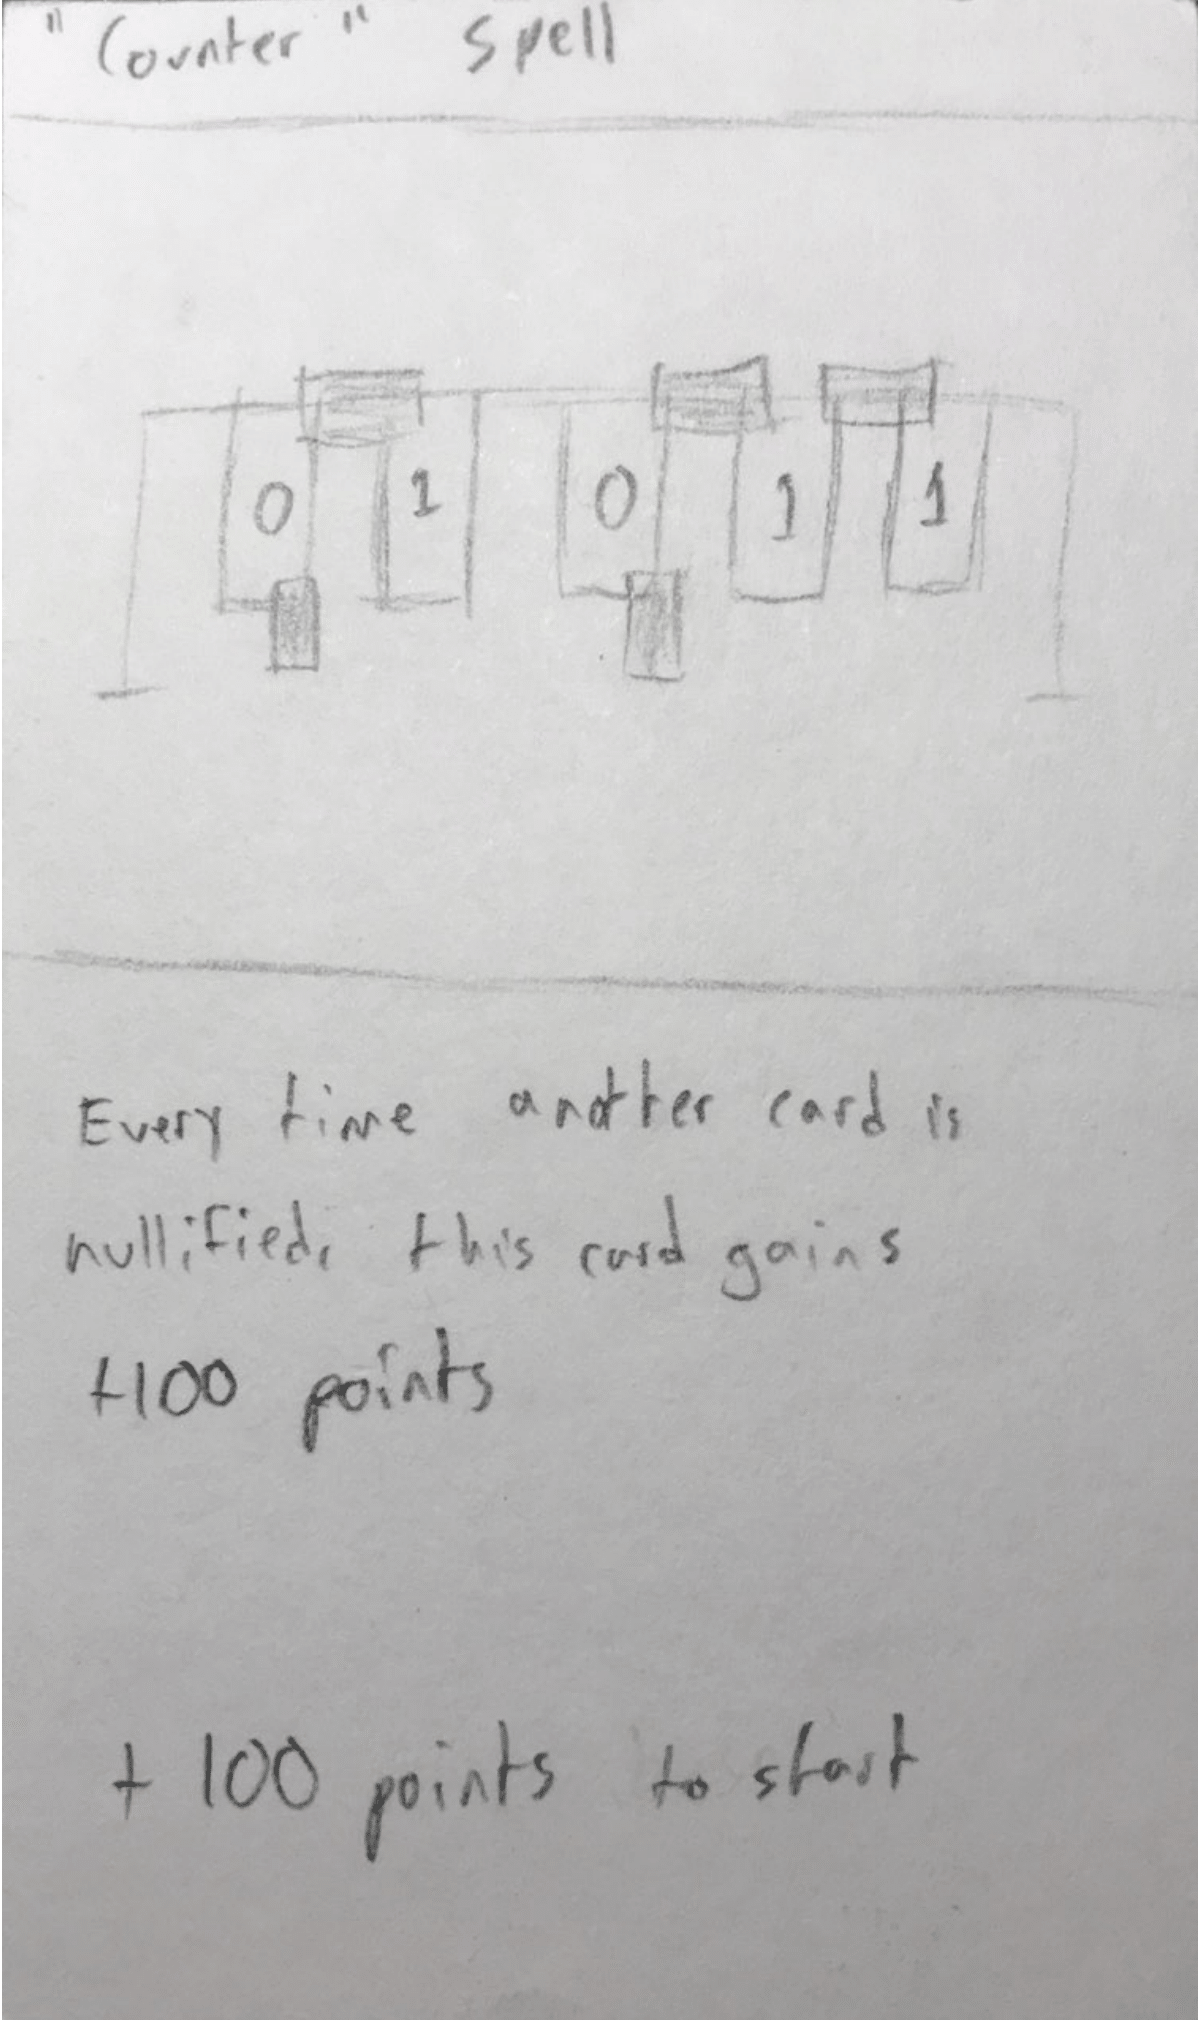 "Counter" Spell
0 1 0 1 1
Every time another card is
nullified, this card gains
+100 points
+ 100 points to start